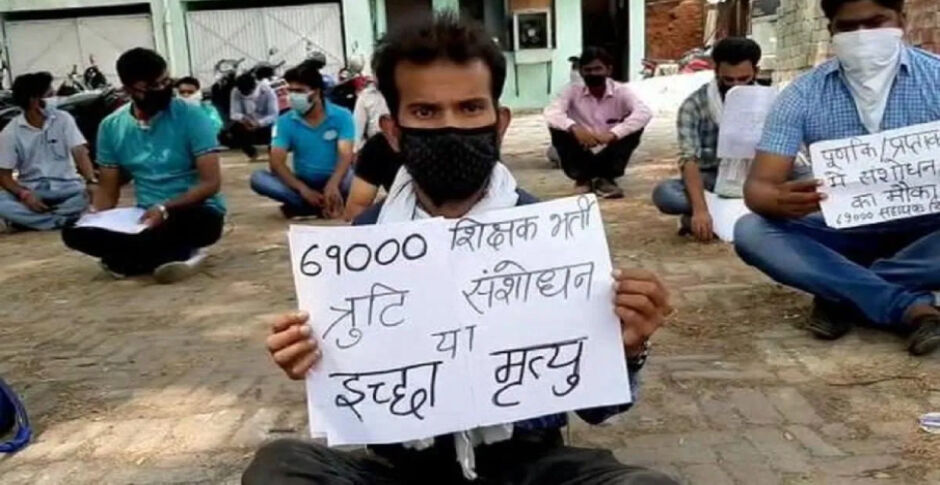 69000 शिक्षक भर्ती
त्रुटि संशोधन
या
इच्छा मृत्यु
पूर्णांक/प्राप्तांक
मे संशोधन
का मौका
69000 सहायक